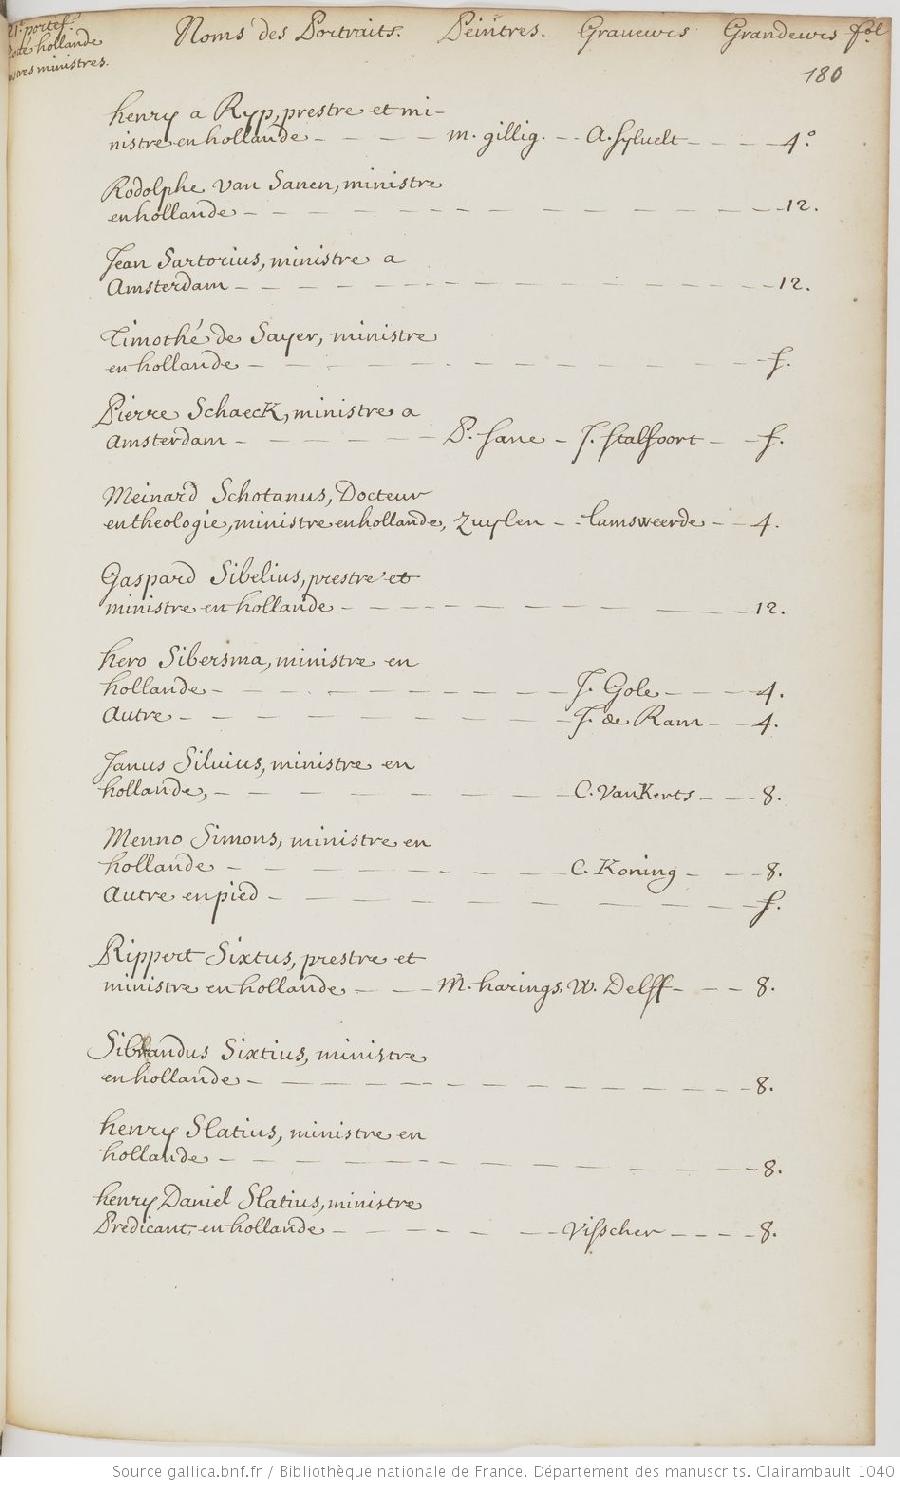 Noms des Portraits. Peintres. Graueurs Grandeurs fol.
portef.
hollande
ministres.
180
henry a Ryp, prestre et mi-
nistre en hollande m. gillig. A. Syluelt 4°.
Rodolphe van Sanen, ministre
en hollande 12.
Jean Sartorius, ministre a
Amsterdam 12.
Timothé de Sayer, ministre
en hollande f.
Pierre Schaeck, ministre a
Amsterdam P. Sane J. Stalfoort f.
Meinard Schotanus, Docteur
en theologie, ministre en hollande, Zuylen lumsweerde 4.
Gaspard Sibelius, prestre et
ministre en hollande 12.
hero Sibersma, ministre en
hollande J. Gole 4.
Autre J. de Ram 4.
Janus Siluius, ministre en
hollande, C. VanKerts 8.
Menno Simons, ministre en
hollande C. Koning 8.
Autre en pied f.
Rippert Sixtus, prestre et
ministre en hollande M. harings. W. Delff 8.
Sibrandus Sixtius, ministre
en hollande 8.
henry Slatius, ministre en
hollande 8.
henry Daniel Slatius, ministre
Predicant, en hollande Visscher 8.
Source gallica.bnf.fr / Bibliothèque nationale de France. Département des manuscrits. Clairambault 1040